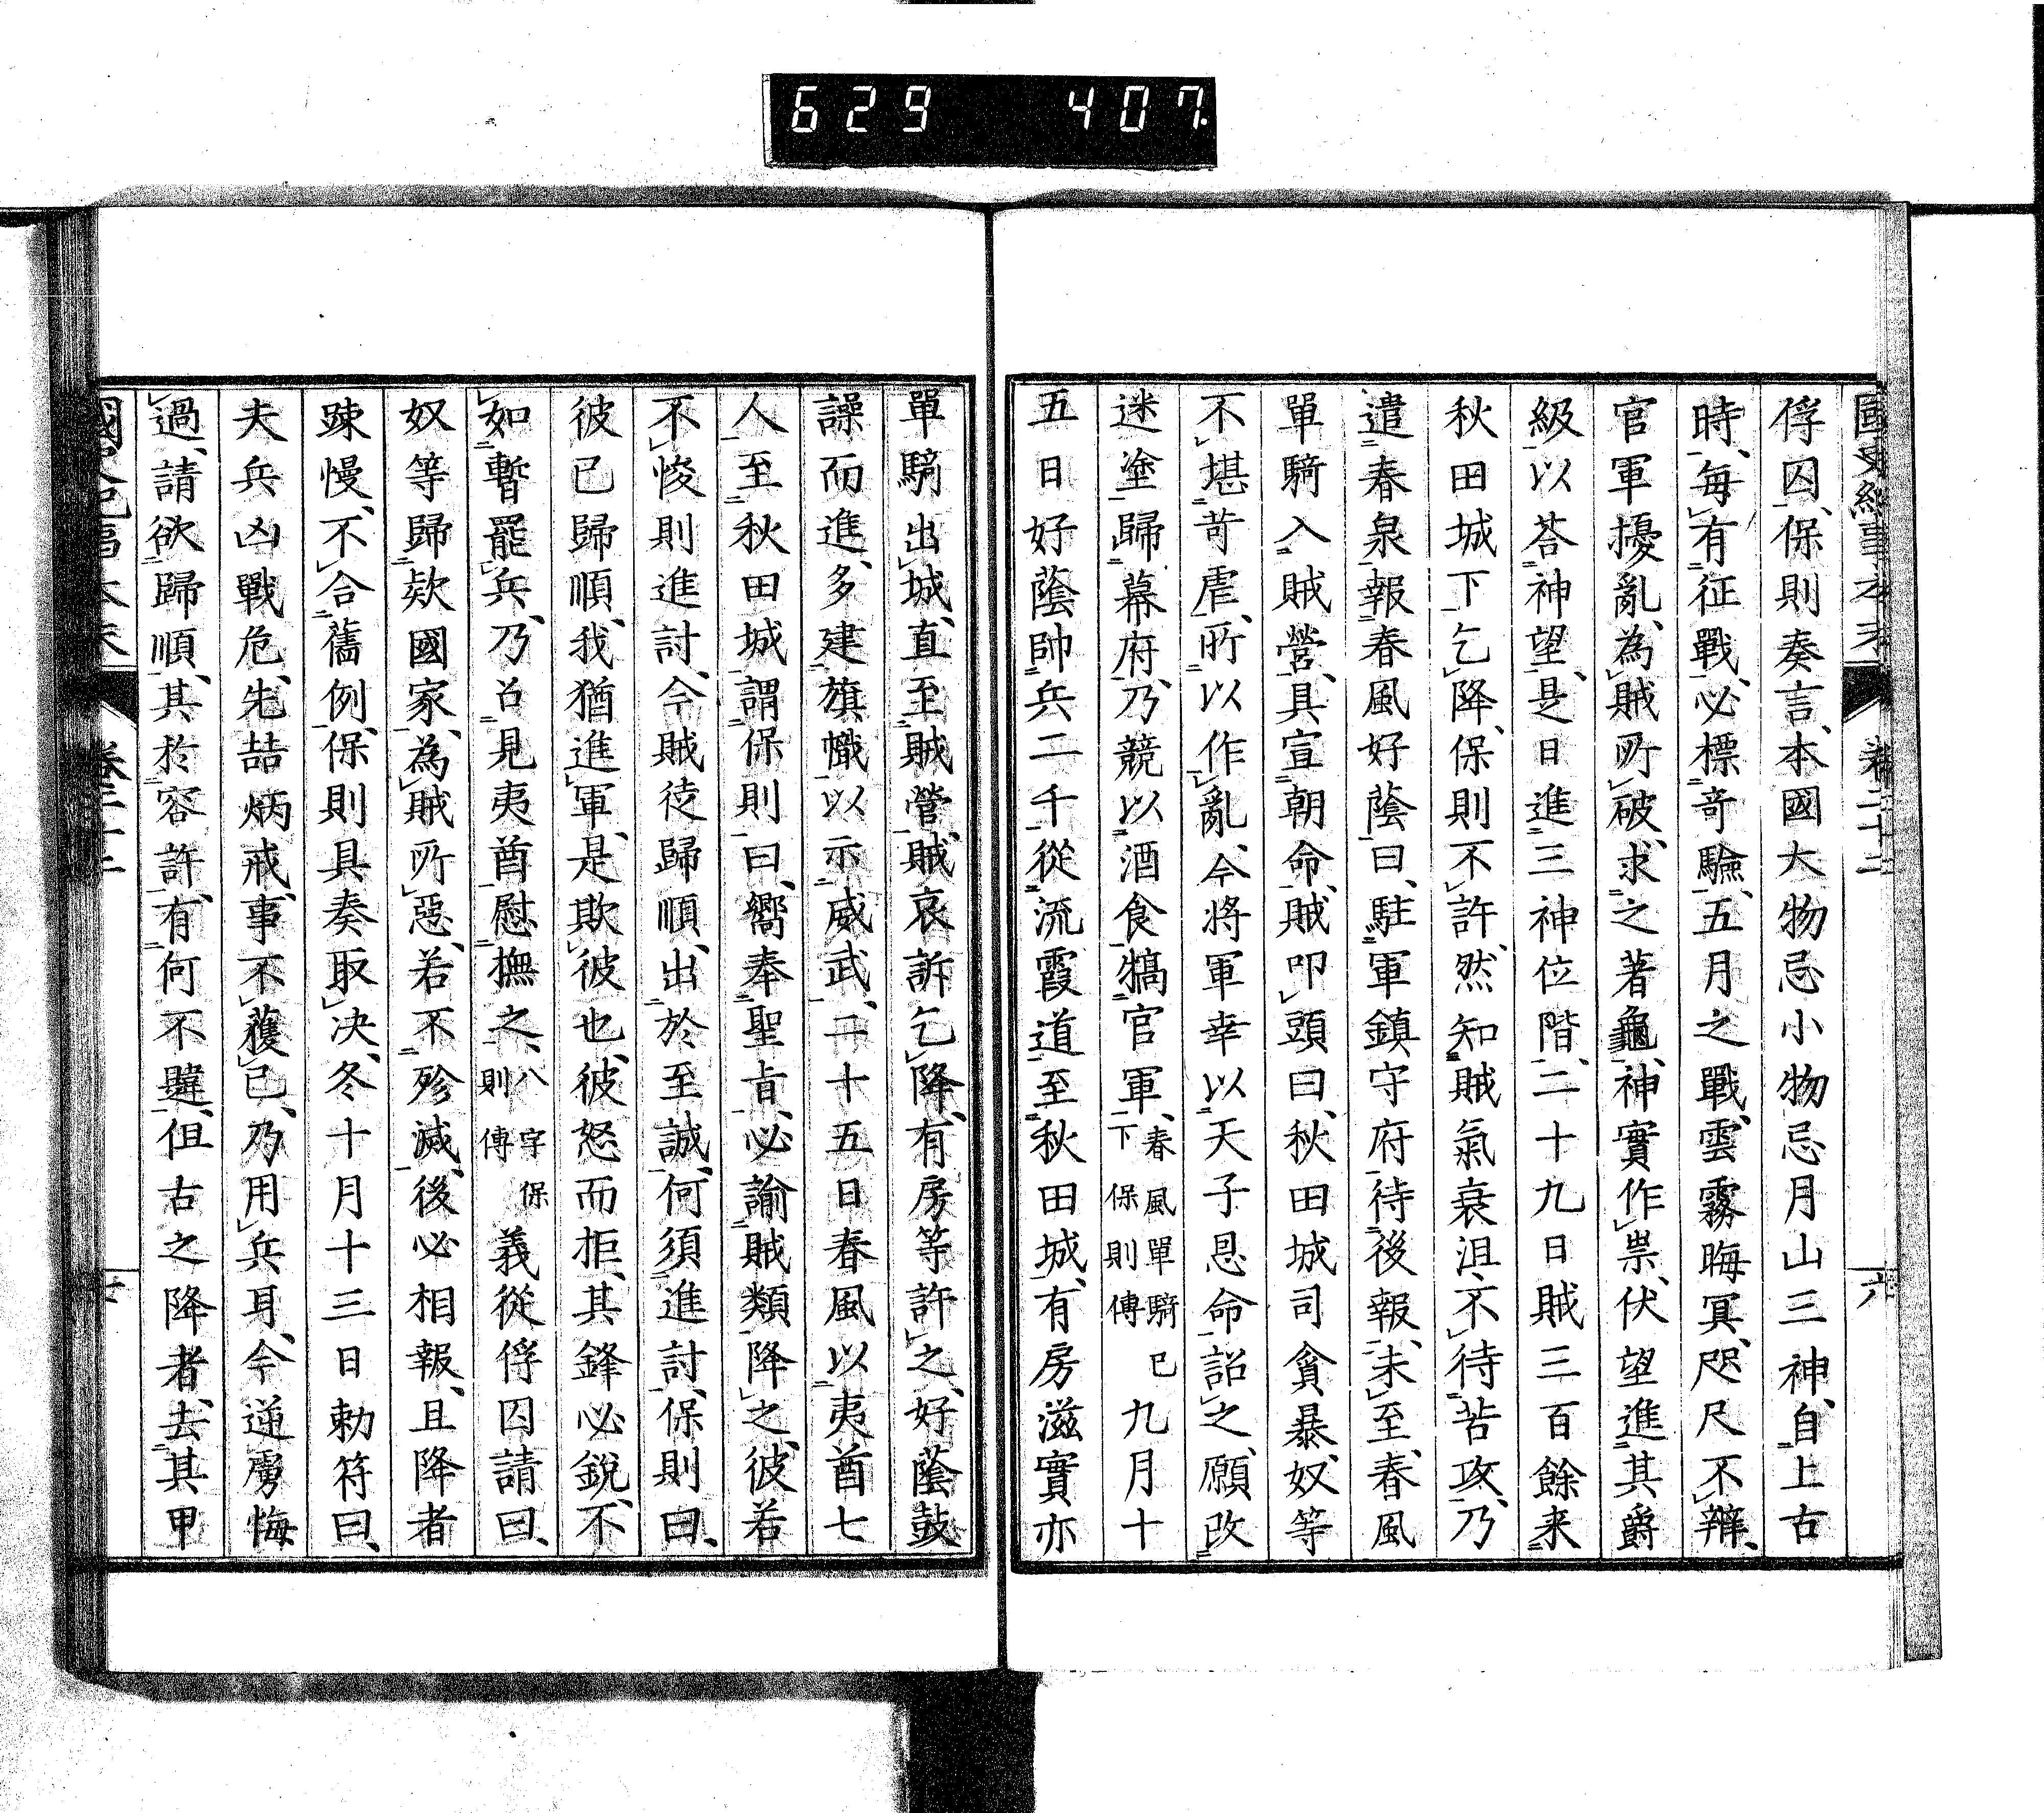 629 407
國史紀事本末 卷二十二 六
俘囚、保則奏言、本國大物忌小物忌月山三神、自上古
時、每有征戰、必標奇驗、五月之戰、雲霧晦冥、咫尺不辨、
官軍擾亂、為賊所破、求之著龜、神實作祟、伏望進其爵
級以荅神望、是日進三神位階、二十九日賊三百餘来
秋田城下乞降、保則不許、然知賊氣衰沮、不待苦攻、乃
遣春泉報春風好蔭曰、駐軍鎮守府待後報、未至、春風
單騎入賊營、具宣朝命、賊叩頭曰、秋田城司貪暴、奴等
不堪苛虐、所以作亂、今將軍幸以天子恩命詔之、願改
迷塗歸幕府、乃競以酒食犒官軍、春風單騎已下保則傳九月十
五日好蔭帥兵二千、從流霞道至秋田城、有房滋實亦
單騎出城、直至賊營、賊哀訴乞降、有房等許之、好蔭鼓
譟而進、多建旗幟以示威武、二十五日春風以夷酋七
人至秋田城、謂保則曰、嚮奉聖旨、必諭賊類降之、彼若
不悛則進討、今賊徒歸順、出於至誠、何須進討、保則曰、
彼已歸順、我猶進軍、是欺彼也、彼怒而拒、其鋒必銳、不
如暫罷兵、乃召見夷酋慰撫之、八字保則傳義從俘囚請曰、
奴等歸欵國家、為賊所惡、若不殄滅、後必相報、且降者
踈慢、不合舊例、保則具奏取决、冬十月十三日勅符曰、
夫兵凶戰危、先喆炳戒、事不獲已、乃用兵耳、今逆虜悔
過、請欲歸順、其於容許、有何不韙、但古之降者、去其甲